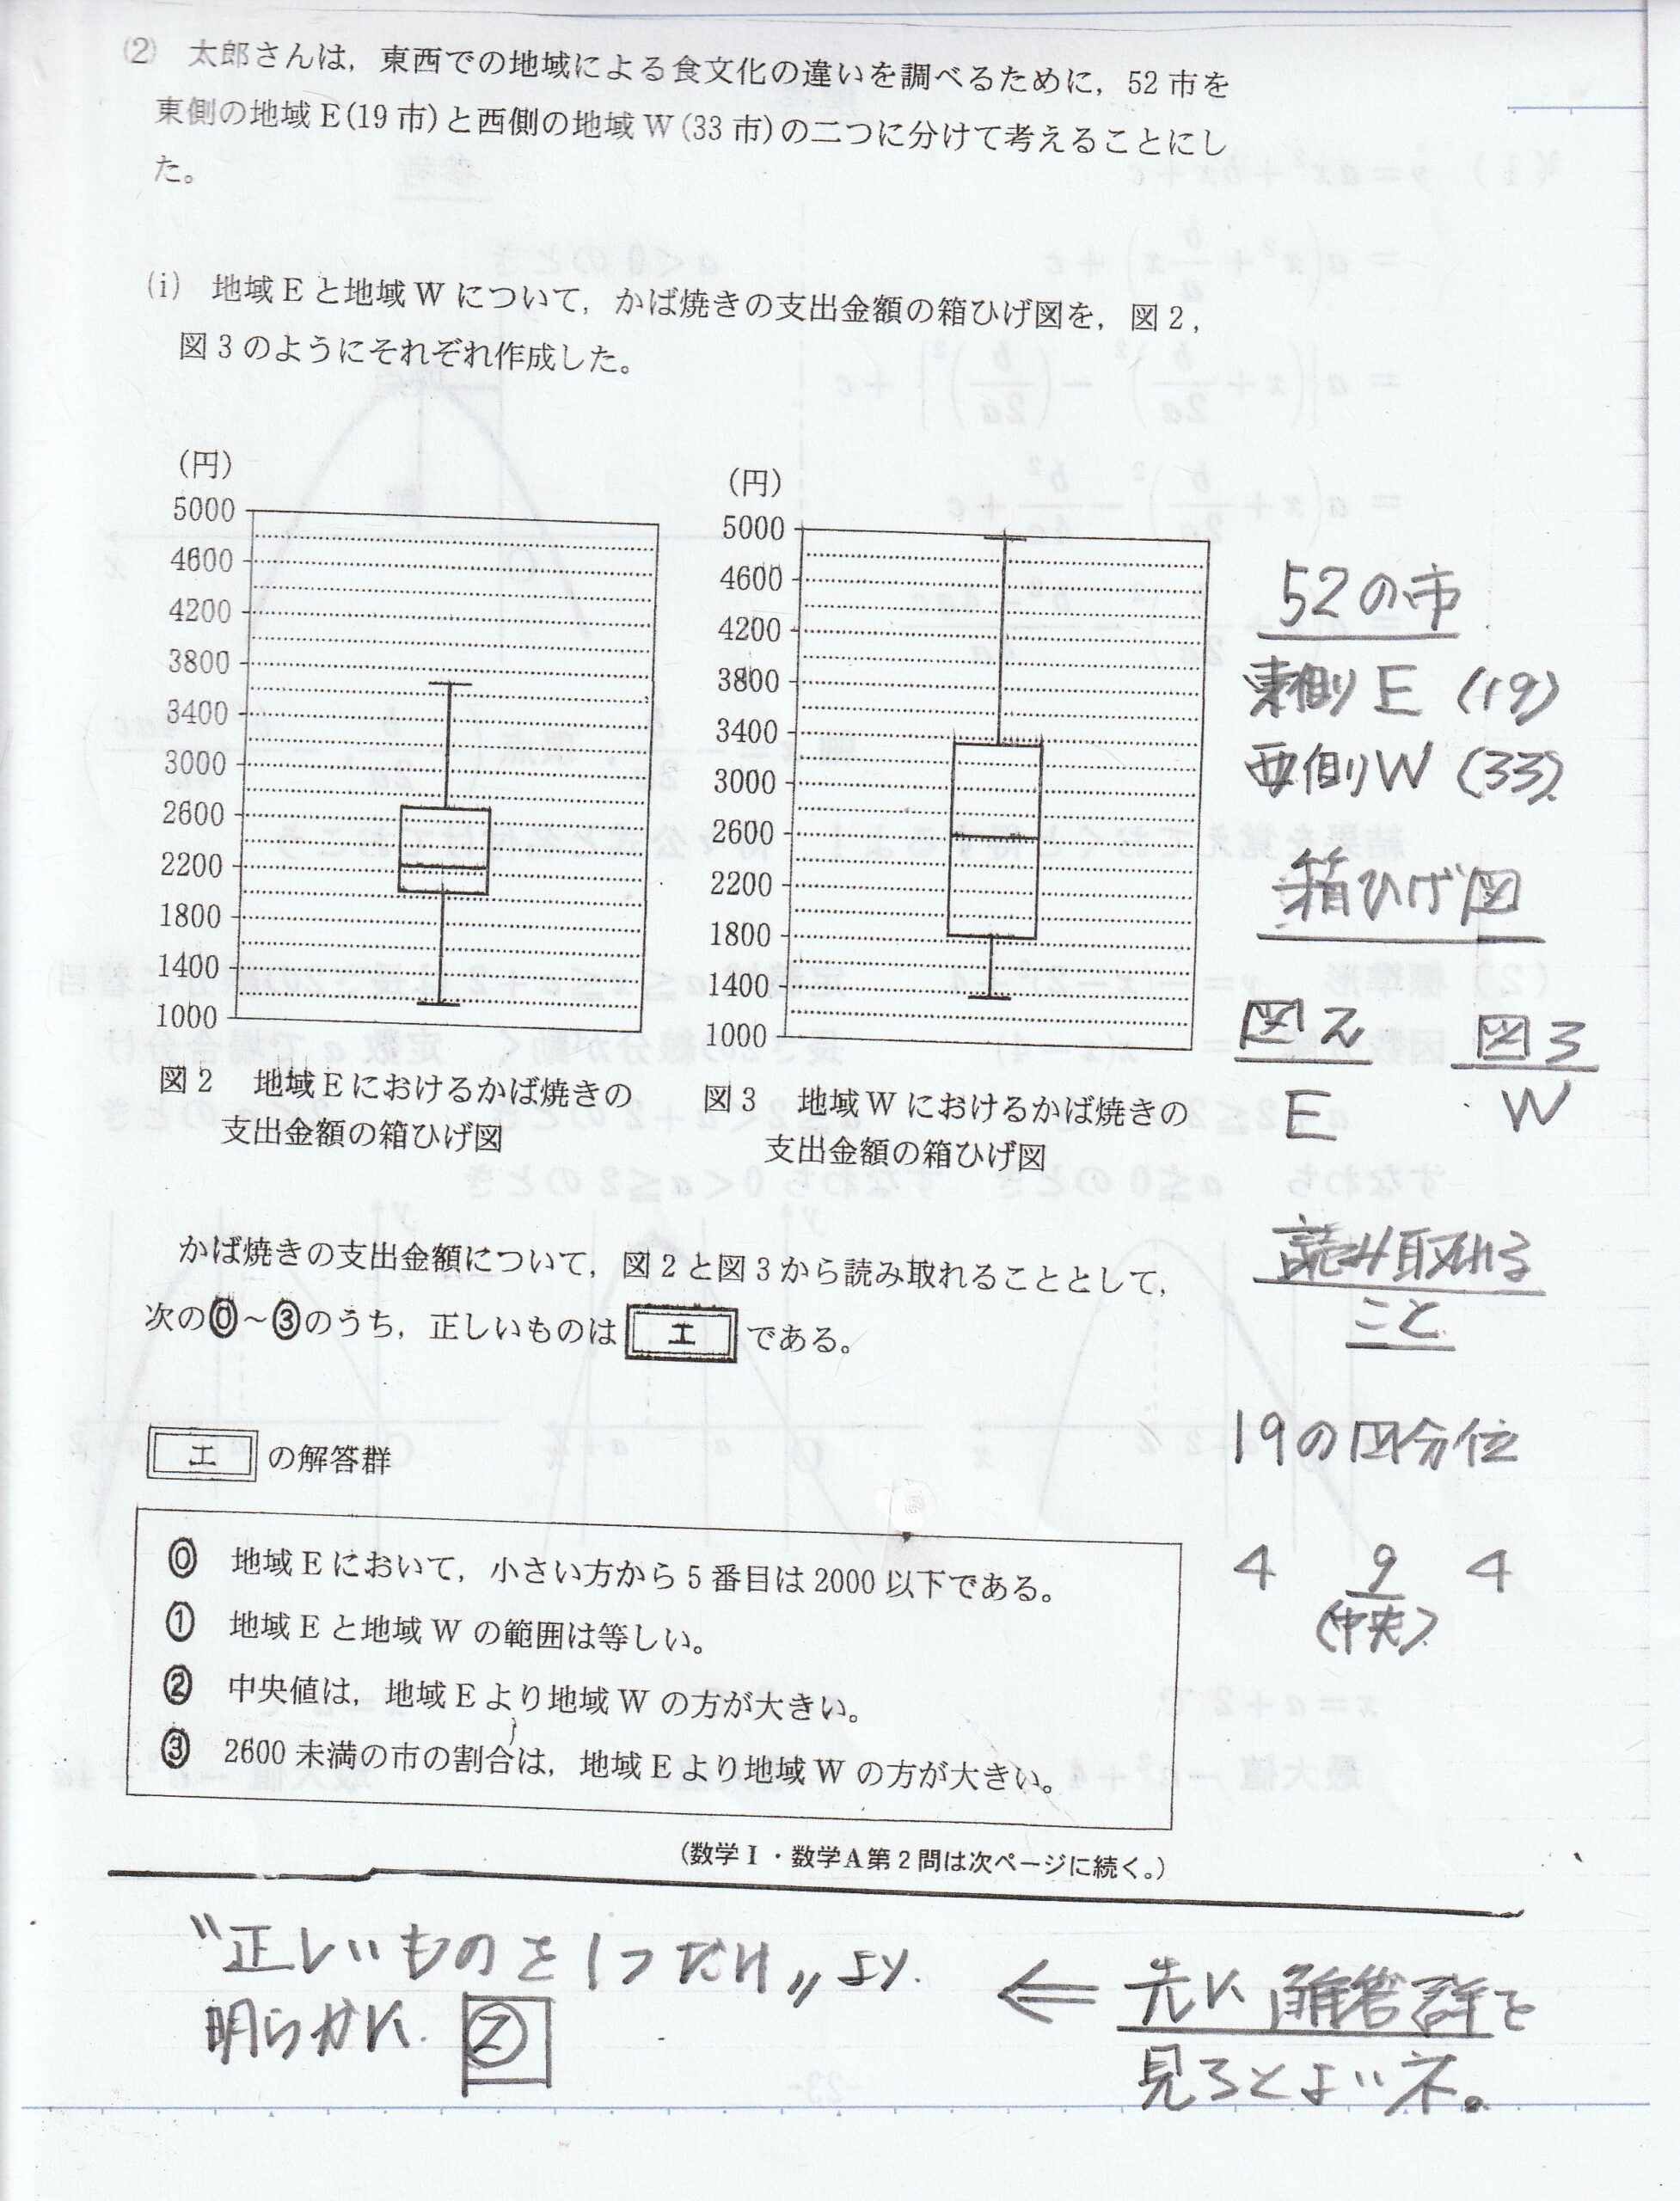 (2) 太郎さんは，東西での地域による食文化の違いを調べるために，52 市を
東側の地域 E(19 市)と西側の地域 W(33 市)の二つに分けて考えることにし
た。
(i) 地域 E と地域 W について，かば焼きの支出金額の箱ひげ図を，図 2，
図 3 のようにそれぞれ作成した。
(円)
5000
4600
4200
3800
3400
3000
2600
2200
1800
1400
1000
図 2 地域 E におけるかば焼きの
支出金額の箱ひげ図
(円)
5000
4600
4200
3800
3400
3000
2600
2200
1800
1400
1000
図 3 地域 W におけるかば焼きの
支出金額の箱ひげ図
52の市
東側 E (19)
西側 W (33)
箱ひげ図
図2 図3
E W
かば焼きの支出金額について，図 2 と図 3 から読み取れることとして，
次の⓪～③のうち，正しいものは エ である。
読み取れる
こと
エ の解答群
19の四分位
⓪ 地域 E において，小さい方から 5 番目は 2000 以下である。
① 地域 E と地域 W の範囲は等しい。
② 中央値は，地域 E より地域 W の方が大きい。
③ 2600 未満の市の割合は，地域 E より地域 W の方が大きい。
4 9 4
(中央)
(数学 I・数学 A 第 2 問は次ページに続く。)
〝正しいものを1つだけ〟より.
明らかに. ②
⇐ 先に解答群を
見るとよいネ。